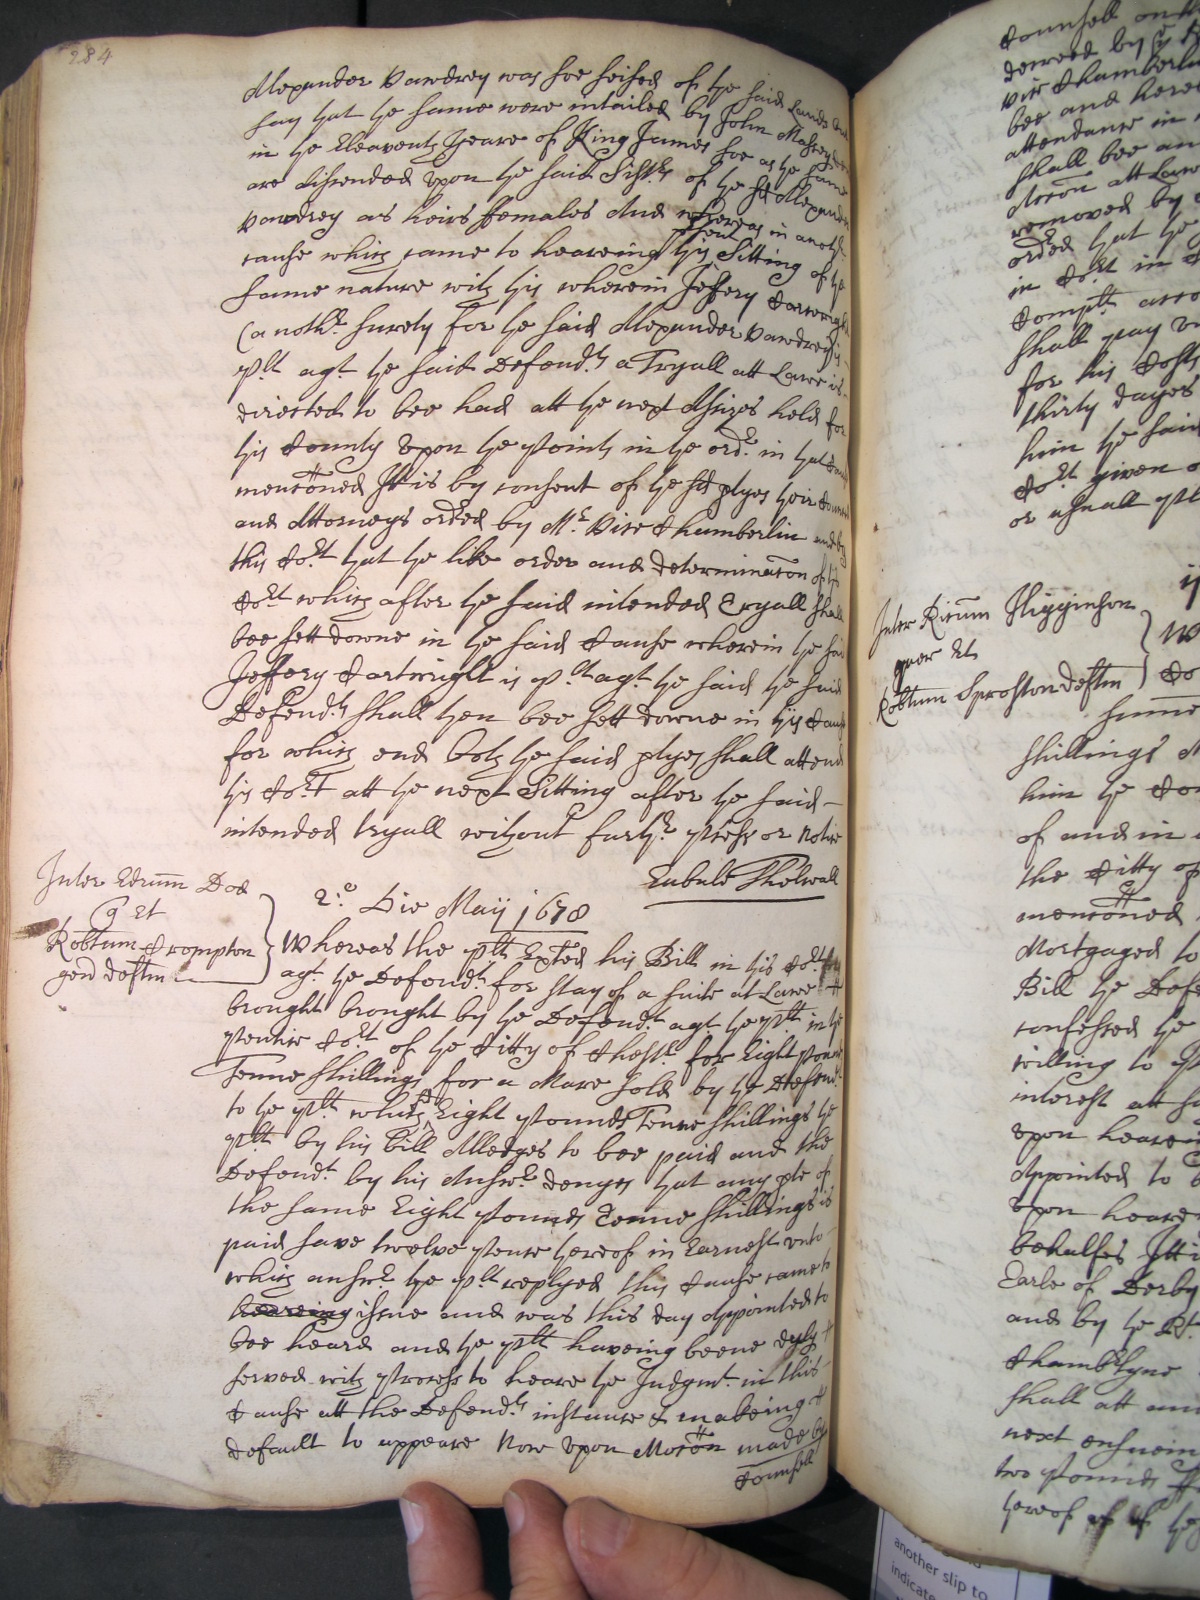 284
Alexander Vawdrey was soe seised of the said Lands and
say that the same were intailed by John Massey
in the Eleaventh Yeare of King James soe as the same
are discended upon the said Sistrs of the sd Alexander
Vawdrey as heirs ffemales And whereas in anothr
cause which came to heareing this psent Sitting of the
same nature with this wherein Jeffery Cartwright
(anothr surety for the said Alexander Vawdrey) is
plt agt the said Defendts a Tryall att Lawe is
directed to bee had att the next Assizes held for
this County upon the points in the ordr in that Cause
mencõned It is by consent of the sd ptyes their Councell
and Attorneys ordred by Mr Vice Chamberlin and by
this Cort that the like order and determinacõn of this
Cort which after the said intended Tryall shall
bee sett downe in the said Cause wherein the said
Jeffery Cartwright is plt agt the said the said
Defendts shall then bee sett downe in this Cause
for which end both the said ptyes shall attend
this Cort att the next Sitting after the said
intended tryall without furthr process or notice
Eubule Thelwall
Inter Edrum Dod
q Et
Robtum Crompton
gen deftm
2o Die Maij 1678
Whereas the plt Exhted his Bill in this Cort
agt the Defendt for stay of a suite at Lawe
brought brought by the Defendt agt the plt in the
pentice Cort of the Citty of Chestr for Eight pounds
Tenne shillings for a Mare sold by the Defendt
to the plt which sd Eight pounds Tenne shillings the
plt by his Bill Alledges to bee paid and the
Defendt by his Answr denyes that any pte of
the same Eight pounds Tenne shillings is
paid save twelve pence thereof in Earnest unto
which answr the plt replyed this Cause came to
heareing issue and was this day Appointed to
bee heard and the plt haveing beene duly
served with process to heare the Judgmt in this
Cause att the Defendts instance & makeing
default to appeare Now upon Mocõn made by
Councell
Councell on
decreed by
Vice Chamberlin
bee and here
attendance in
shall bee an
Accõn att Law
removed by
ordred that the
in Cort in
Complt acco
shall pay
for his Costs
thirty dayes
him the said
Cort given
or usuall
Inter Ricum Higginson
quer Et
Robtum Sproston deftm
shillings
him the
of and in
the Citty of
mencõned
Mortgaged to
Bill the Defe
confessed the
willing to
interest att
upon heareing
Appointed to
Upon heare
behalfes It i
Earle of Derby
and by the Rt
Chamblyne
shall att
next ensuein
two pounds
thereof
another slip to
indicate